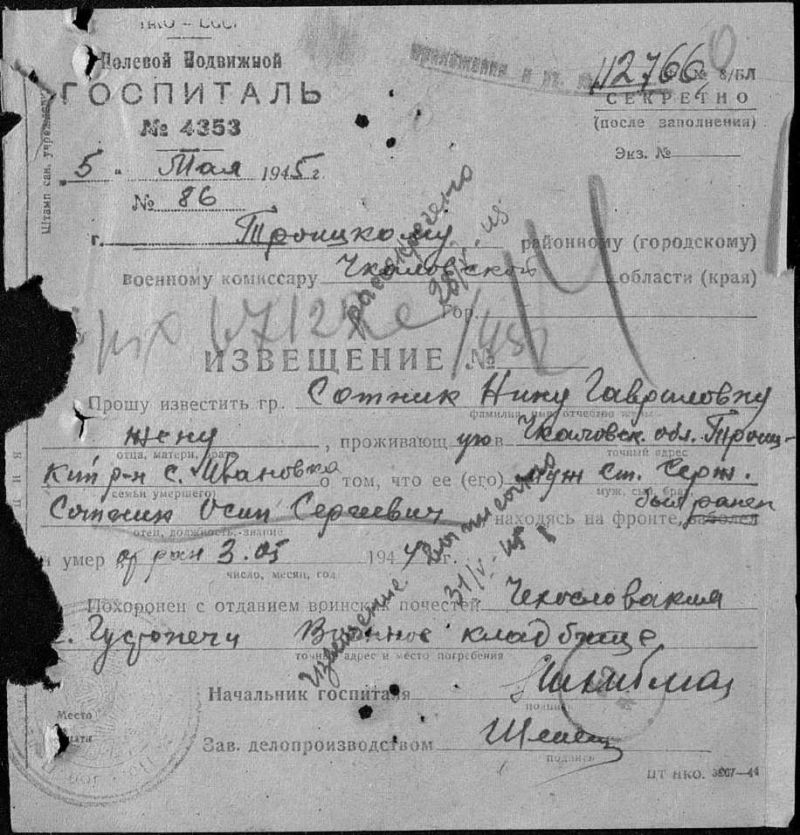 НКО – СССР
Полевой Подвижной
ГОСПИТАЛЬ
№ 4353
Штамп сан. учрежд
5 " Мая 1945 г.
№ 86
112766
№ 8/БЛ
СЕКРЕТНО
(после заполнения)
Экз. №
г. Троицкому районному (городскому)
военному комиссару Чкаловской области (края)
гор.
ИЗВЕЩЕНИЕ №
Прошу известить гр. Сотник Нину Гавриловну
фамилия, имя, отчество
жену, проживающ ую в Чкаловск. обл. Троиц-
отца, матери, брата
точный адрес
кий р-н с. Ивановка о том, что ее (его) муж ст. серж.
семьи умершего)
муж, сын, брат
Сотник Осип Сергеевич находясь на фронте, заболел был ранен
отец, должность, звание
и умер от ран 3.05 194 г.
число, месяц, год
Похоронен с отданием воинских почестей Чехословакия
г. Густопечи Военное кладбище
точный адрес и место погребения
Начальник госпиталя
подпись
Зав. делопроизводством
подпись
Место
печати
ЦТ НКО. 3207—44
рассекречено
Извещение выписано
31/V-45